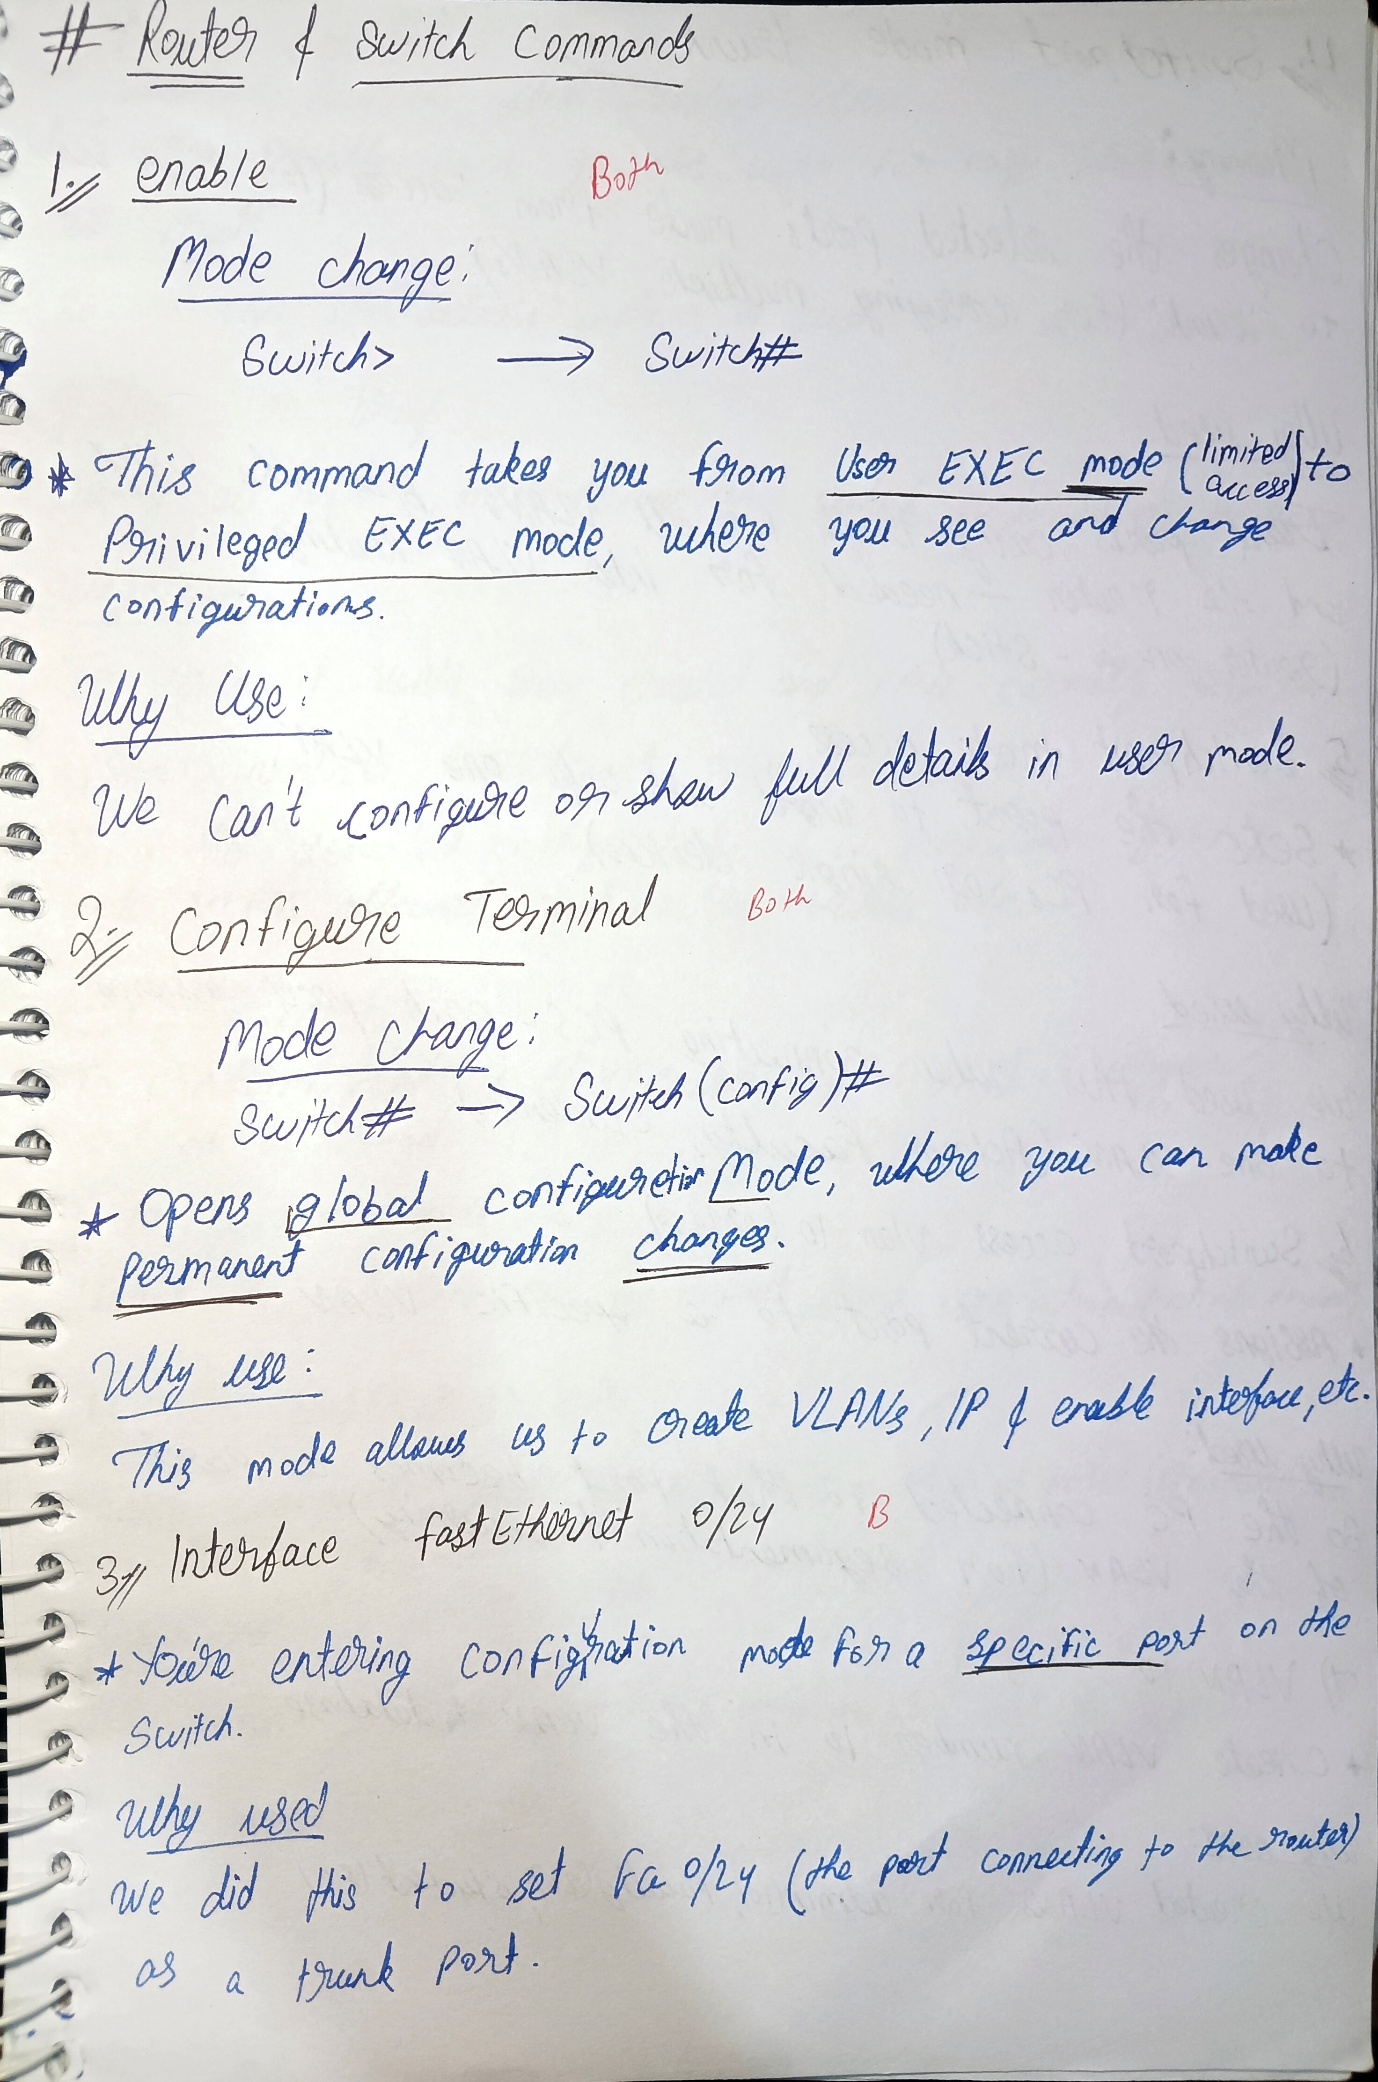 # Router & Switch Commands
1. enable Both
Mode change:
Switch> → Switch#
* This command takes you from User EXEC mode (limited access) to
Privileged EXEC mode, where you see and change
configurations.
Why Use:
We can't configure or show full details in user mode.
2. Configure Terminal Both
Mode Change:
Switch# → Switch(config)#
* Opens global configuration Mode, where you can make
permanent configuration changes.
Why use:
This mode allows us to create VLANs, IP & enable interface, etc.
3. Interface fastEthernet 0/24 B
* You're entering configuration mode for a specific port on the
Switch.
Why used
We did this to set Fa 0/24 (the port connecting to the router)
as a trunk port.